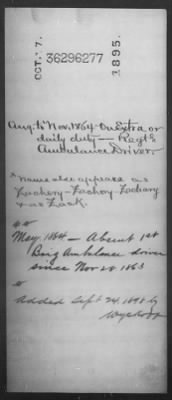 OCT. 17.
36296277
1895.
Aug. & Nov. 1864 - On extra or
daily duty - Regtl
Ambulance Driver.
* Name also appears as
Zachery - Zachoy - Zachary
+ as Zack.
**
May, 1864 - Absent 1st
Brig Ambulance driver
since Nov 28 1863
*
Added Sept 24, 1898 by